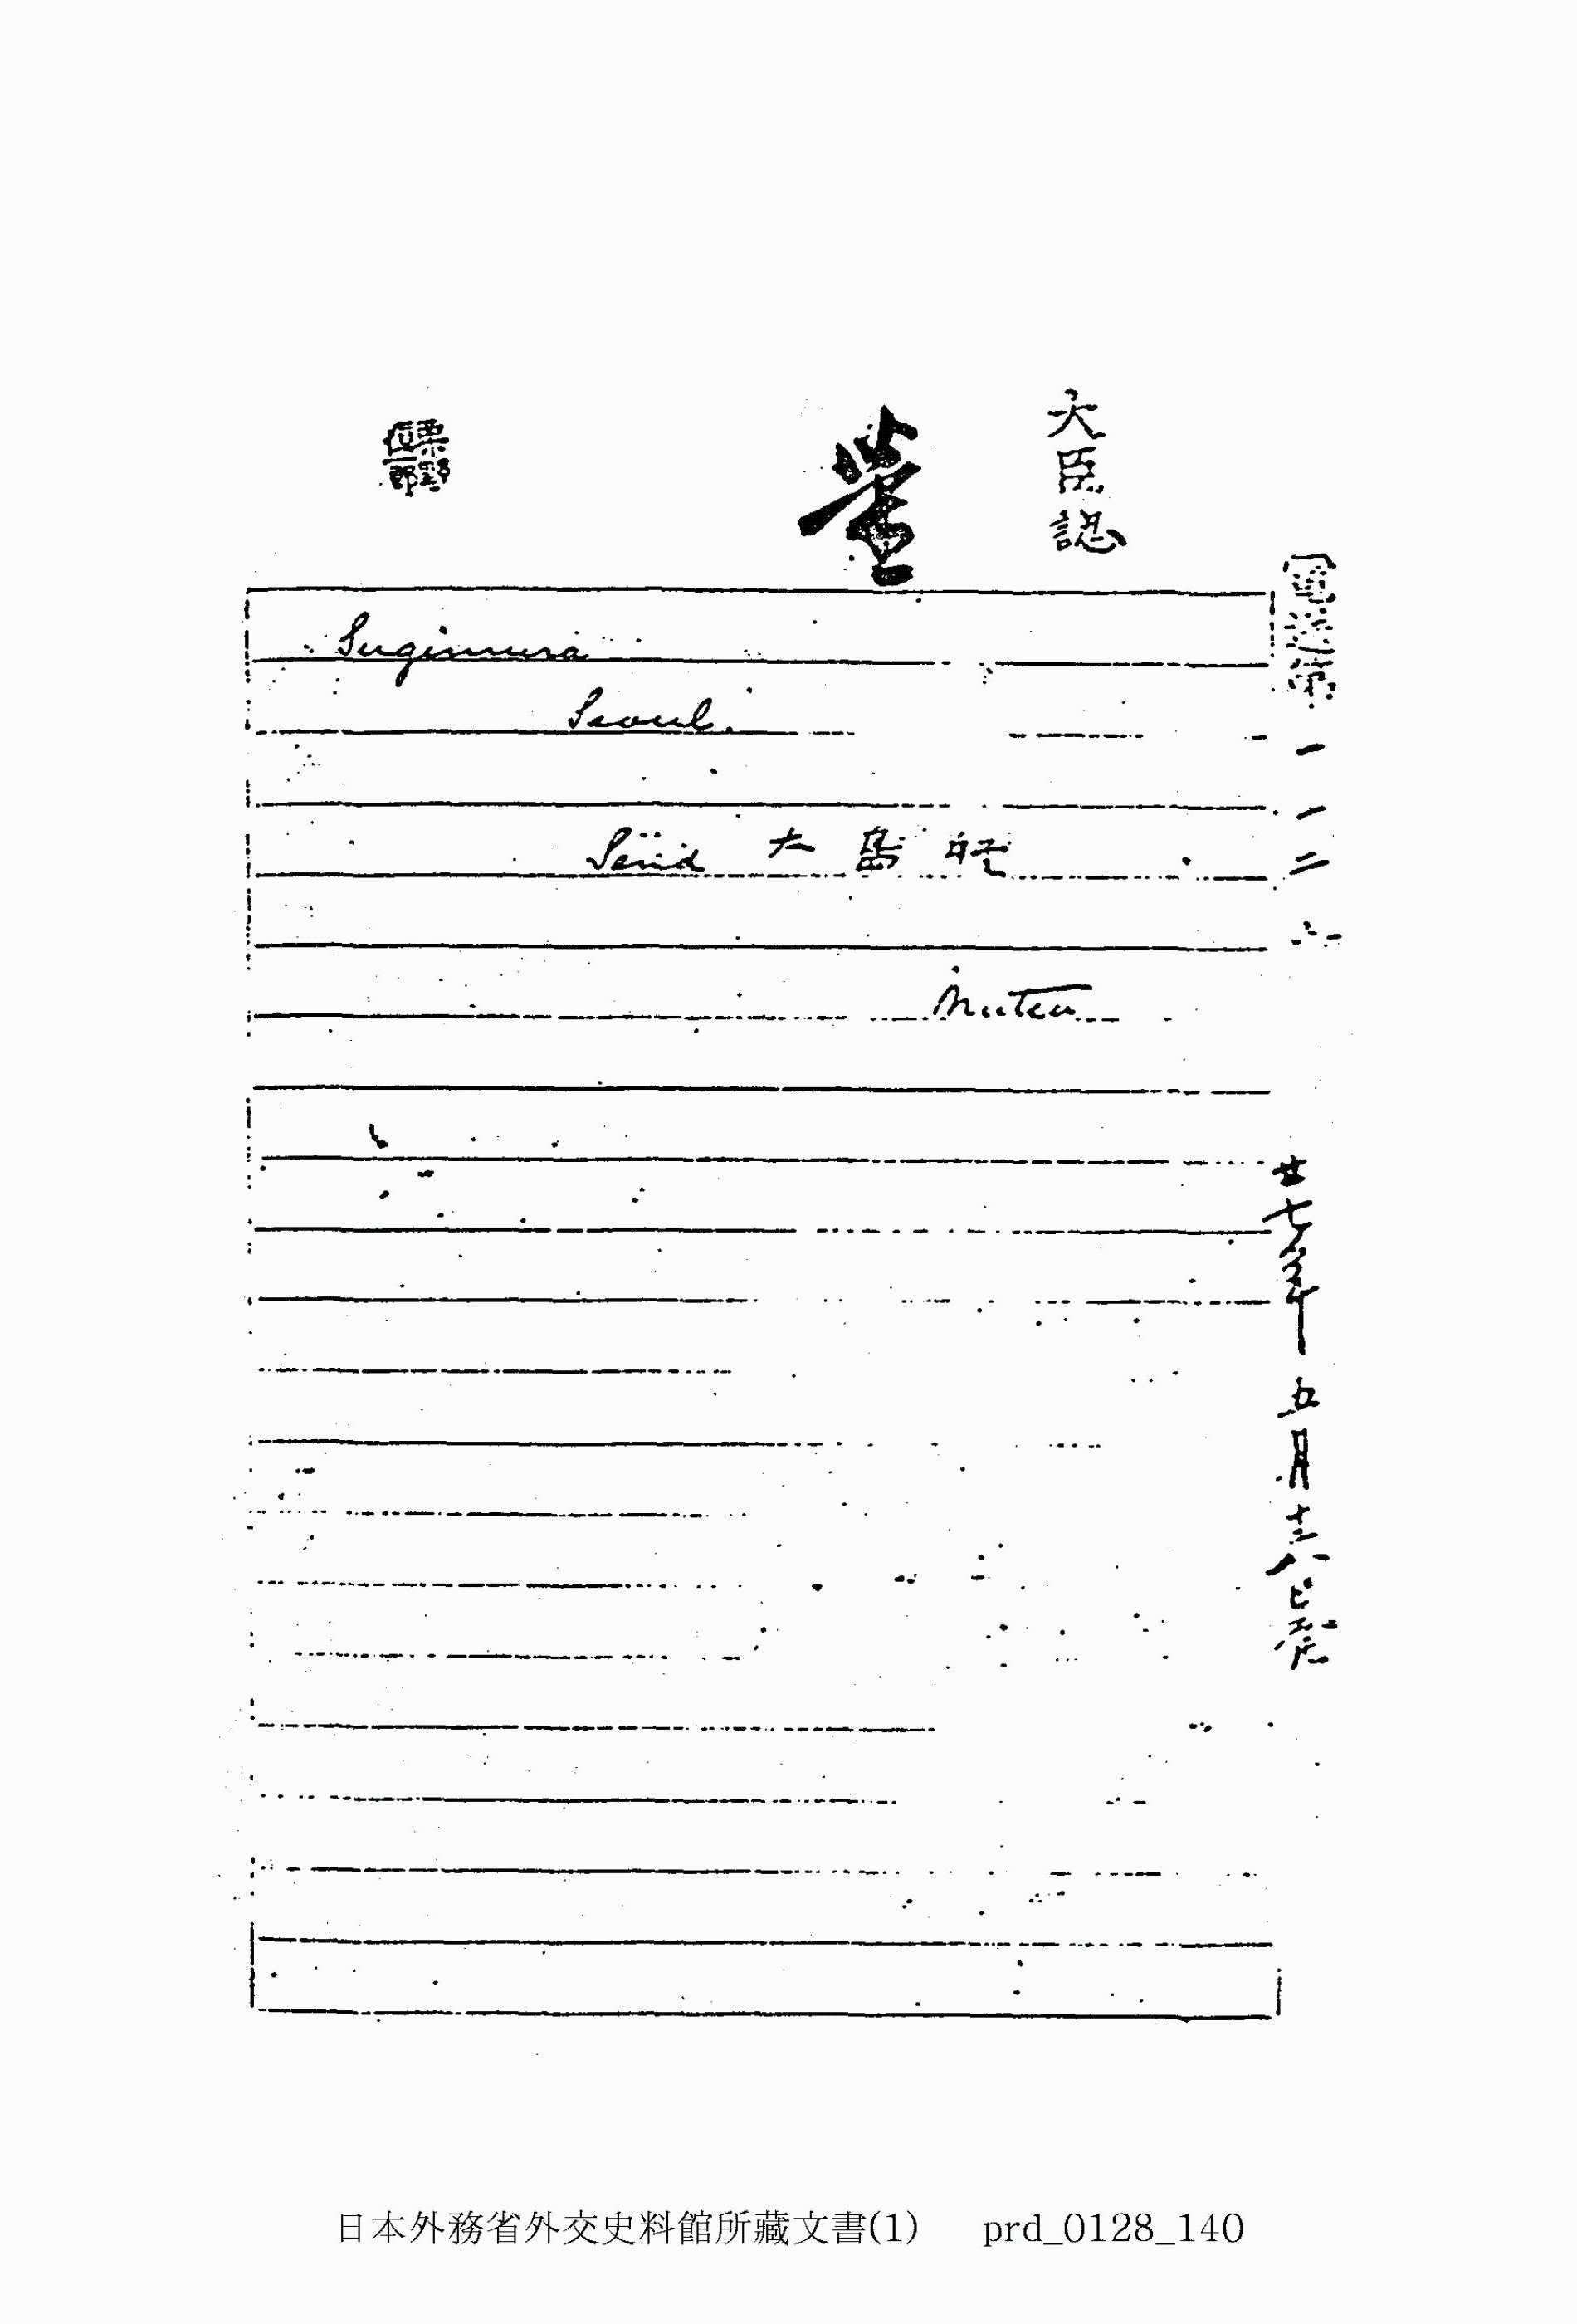 大臣認
栗野慎一郎
電送第一一二
Sugimura
Seoul.
Send 大島
Mutsu
廿七年五月十八日発
日本外務省外交史料館所藏文書(1) prd_0128_140